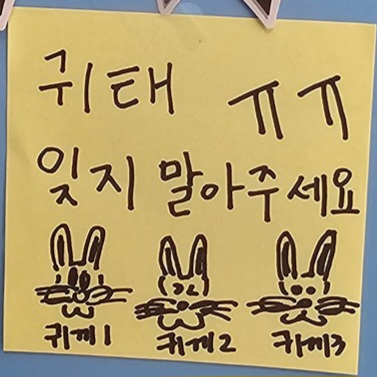 귀태 ㅠㅠ
잊지 말아주세요
귀끼1 귀끼2 카끼3